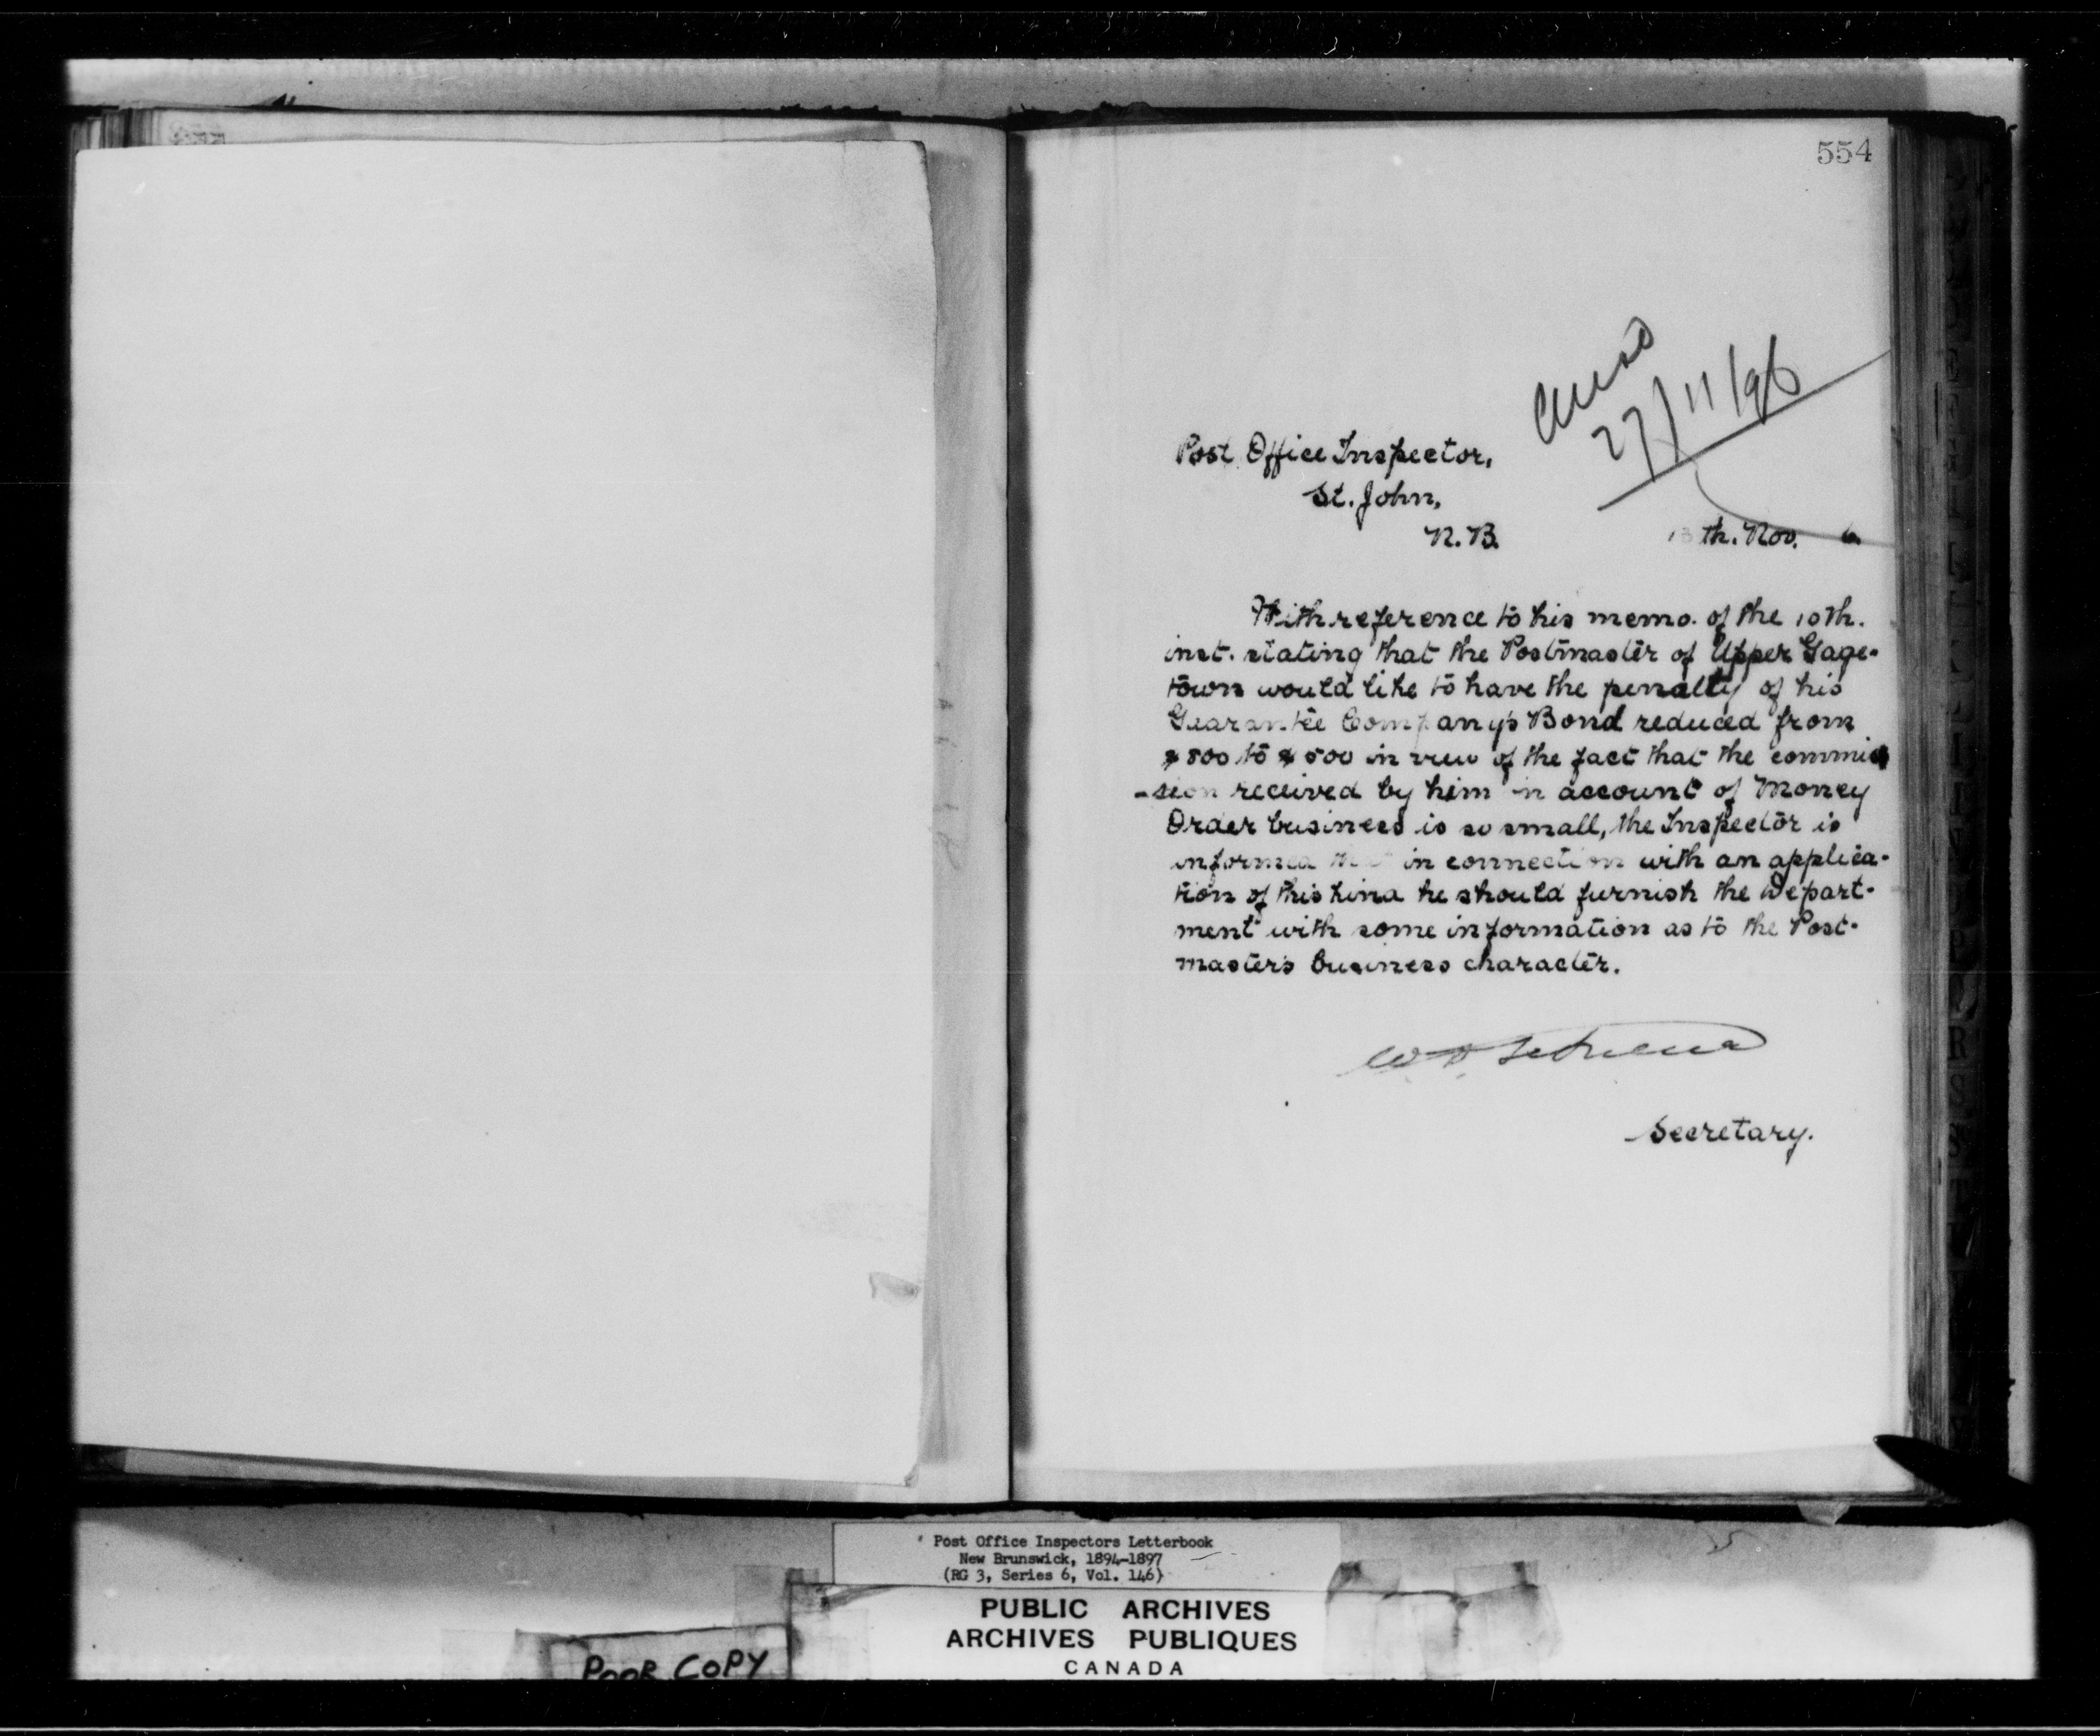 554
27/11/96
Post Office Inspector,
St. John,
N.B.
13th. Nov. 6.
With reference to his memo. of the 10th.
inst. stating that the Postmaster of Upper Gage-
town would like to have the penalty of his
Guarantee Company's Bond reduced from
$800 to $500 in view of the fact that the commis
-sion received by him on account of Money
Order business is so small, the Inspector is
informed that in connection with an applica-
tion of this kind he should furnish the Depart-
ment with some information as to the Post-
master's business character.
Secretary.
Post Office Inspectors Letterbook
New Brunswick, 1894-1897
(RG 3, Series 6, Vol. 146)
PUBLIC ARCHIVES
ARCHIVES PUBLIQUES
CANADA
POOR COPY